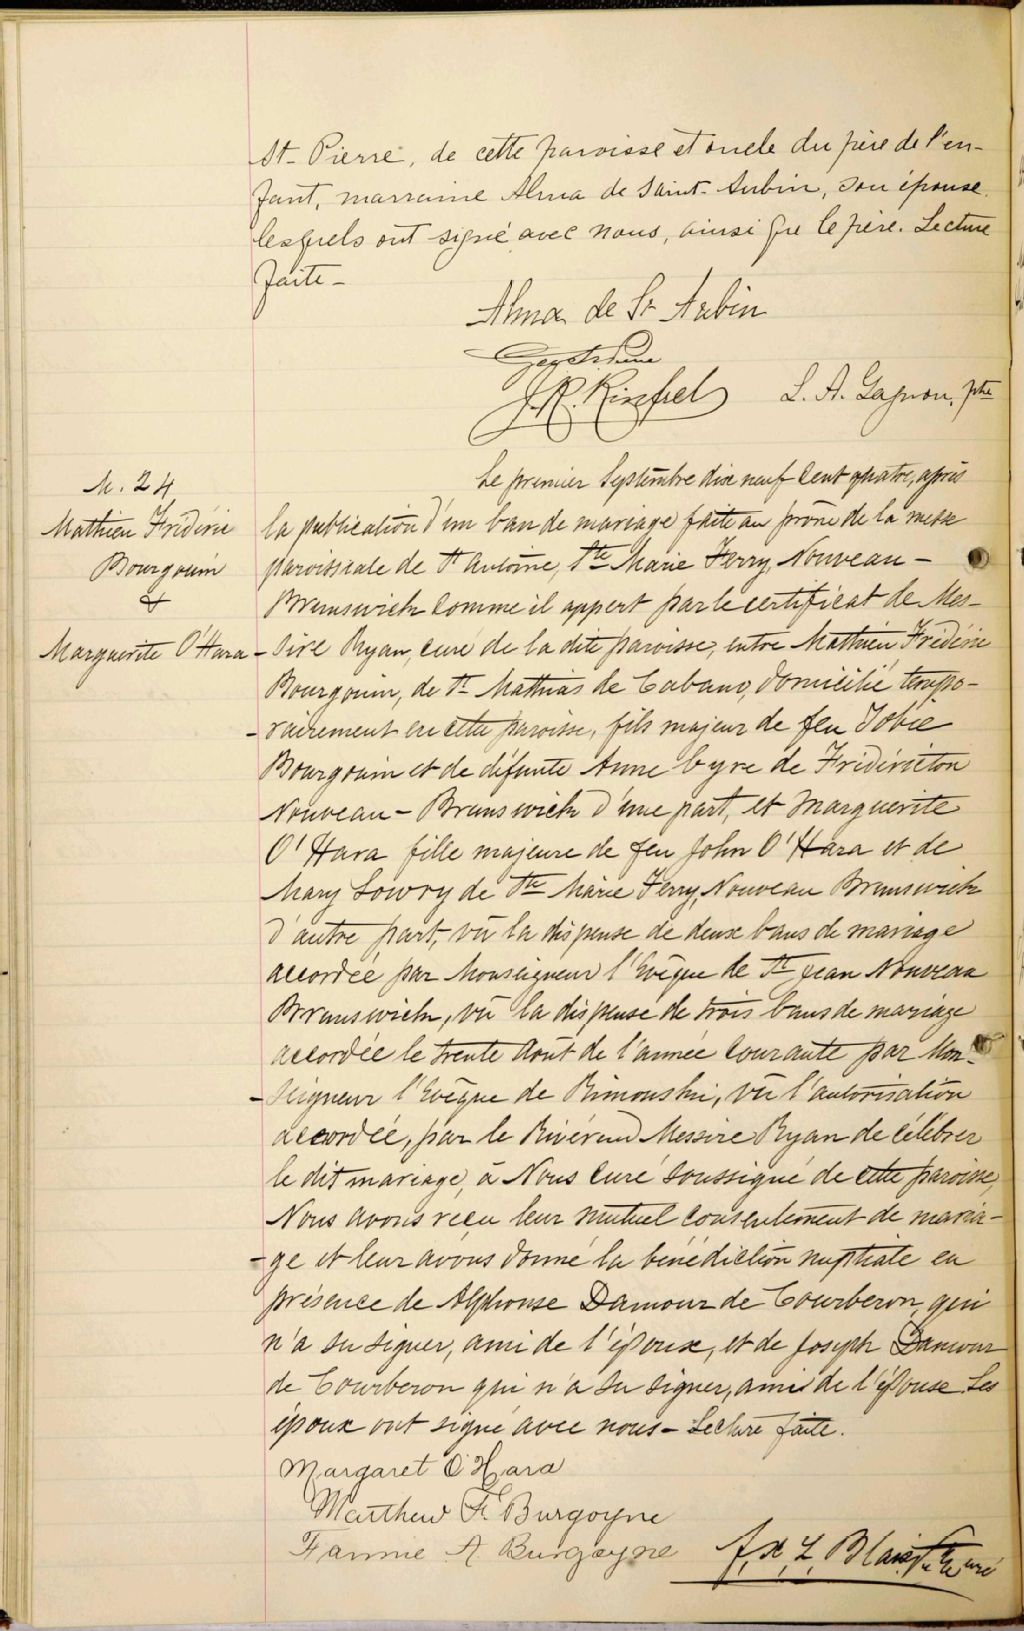 St- Pierre, de cette paroisse et oncle du père de l'en-
fant, marraine Alma de Saint-Aubin, son épouse
lesquels ont signé avec nous, ainsi que le père. Lecture
faite-
Alma de St Aubin
J. R. Kinfret L. A. Gagnon, ptre
M. 24
Mathieu Frédéric
Bourgouin
&
Marguerite O'Hara
Le premier Septembre dix neuf Cent quatre, après
la publication d'un ban de mariage faite au prône de la messe
paroissiale de St Antoine, Ste Marie Ferry, Nouveau-
Brunswick comme il appert par le certificat de Mes-
-sire Ryan, curé de la dite paroisse, entre Mathieu Frédéric
Bourgouin, de St Mathias de Cabano, domicilié tempo-
-rairement en cette paroisse, fils majeur de feu Tobie
Bourgouin et de défunte Anne Cyre de Fridéricton
Nouveau-Brunswick d'une part, et Marguerite
O'Hara fille majeure de feu John O'Hara et de
Mary Lowry de Ste Marie Ferry, Nouveau Brunswick
d'autre part, vû la dispense de deux bans de mariage
accordée par Monseigneur l'Evêque de St Jean Nouveau
Brrunswick, vû la dispense de trois bans de mariage
accordée le trente Août de l'année courante par Mon-
-seigneur l'Evêque de Rimouski, vû l'autorisation
accordée, par le Révérend Messire Ryan de célébrer
le dit mariage, à Nous curé soussigné de cette paroisse,
Nous avons reçu leur mutuel consentement de maria-
-ge et leur avons donné la bénédiction nuptiale en
présence de Alphonse Damour de Courberon, qui
n'a su signer, ami de l'époux, et de Joseph Damour
de Courberon qui n'a su signer, ami de l'épouse. Les
époux ont signé avec nous- Lecture faite.
Margaret O'Hara
Matthew F. Burgoyne
Fannie A. Burgoyne F, X, L, Blais, Ptre Curé